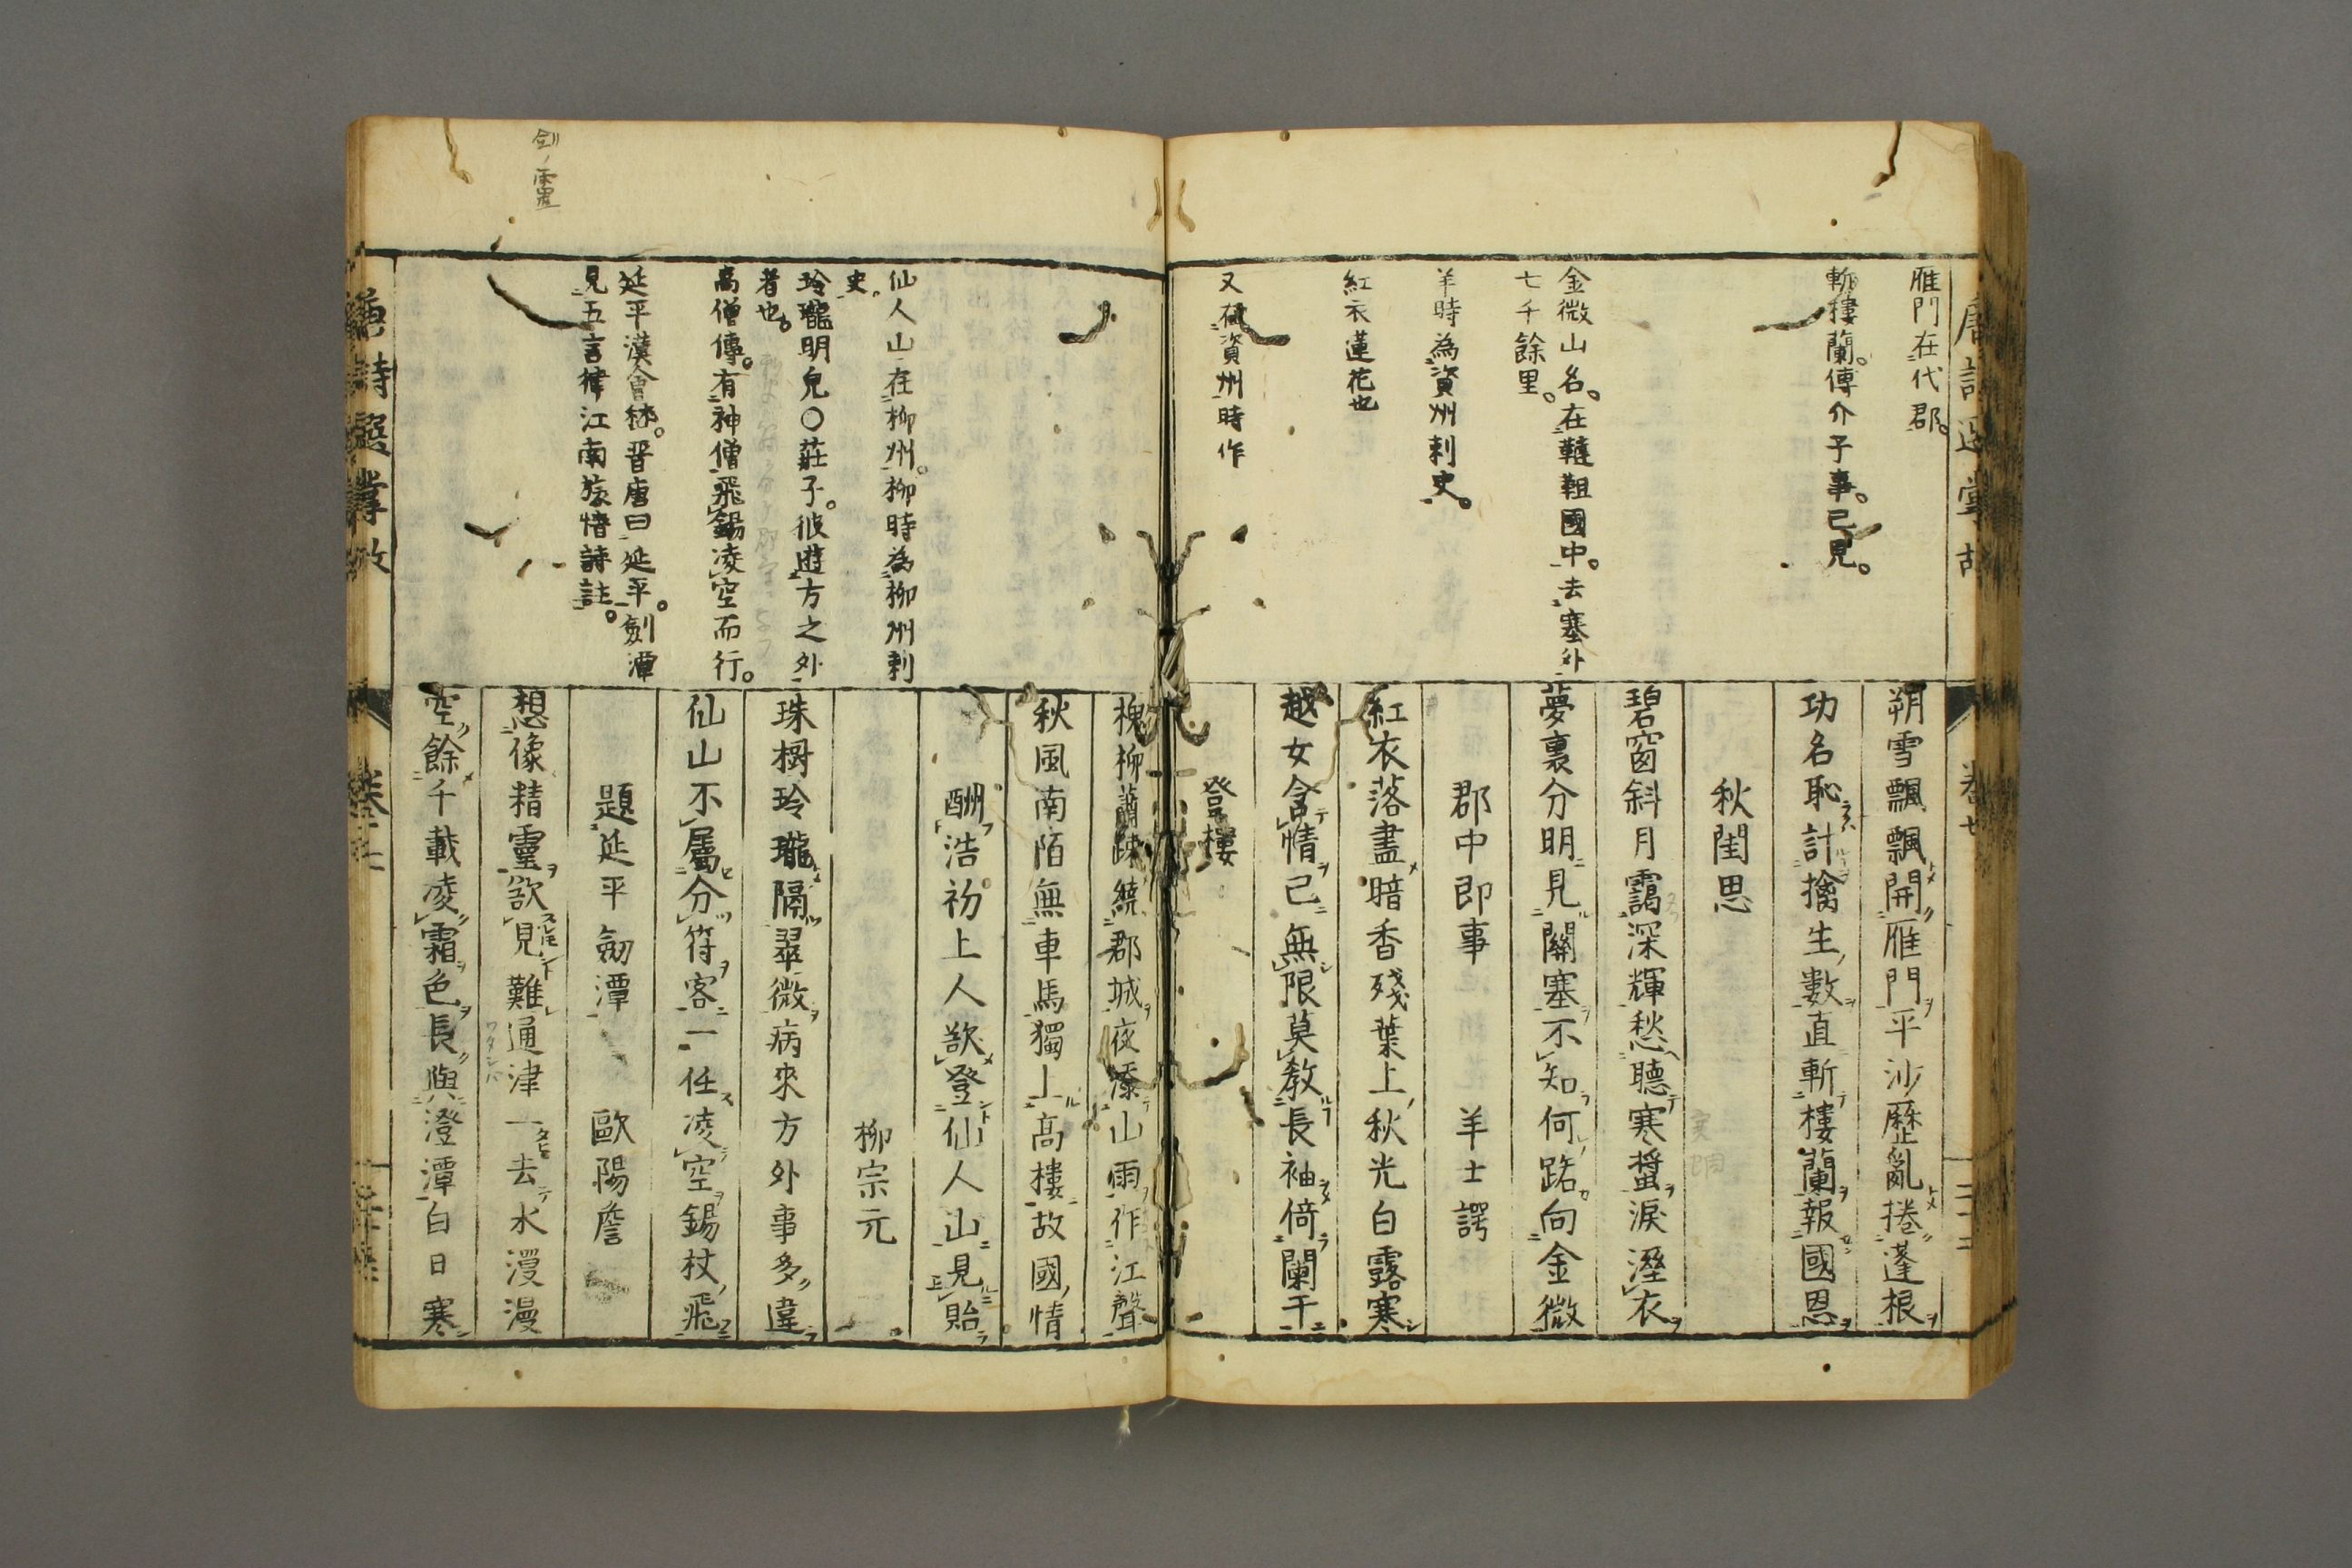 唐詩選掌故
卷七
二十二
雁門在代郡。
斬樓蘭。傅介子事。已見。
金微山名。在韃靼國中。去塞外
七千餘里。
羊時為資州刺史。
紅衣蓮花也
又在資州時作
朔雪飄飄開雁門平沙歷亂捲蓬根
功名恥計擒生數直斬樓蘭報國恩
秋閨思
碧窗斜月靄深輝愁聽寒螿淚溼衣
夢裏分明見關塞不知何路向金微
郡中即事 羊士諤
紅衣落盡暗香殘葉上秋光白露寒
越女含情已無限莫教長袖倚闌干
登樓
仙人山在柳州。柳時為柳州刺
史。
玲瓏明皃〇莊子。彼遊方之外
者也。
高僧傳。有神僧飛錫凌空而行。
延平漢會稽。晋唐曰延平。劍潭
見五言律江南旅情詩註。
槐柳蕭疎繞郡城夜添山雨作江聲
秋風南陌無車馬獨上高樓故國情
酬浩初上人欲登仙人山見貽
柳宗元
珠樹玲瓏隔翠微病來方外事多違
仙山不屬分符客一任凌空錫杖飛
題延平劒潭 歐陽詹
想像精靈欲見難通津一去水漫漫
空餘千載凌霜色長與澄潭白日寒
唐詩選掌故
卷七